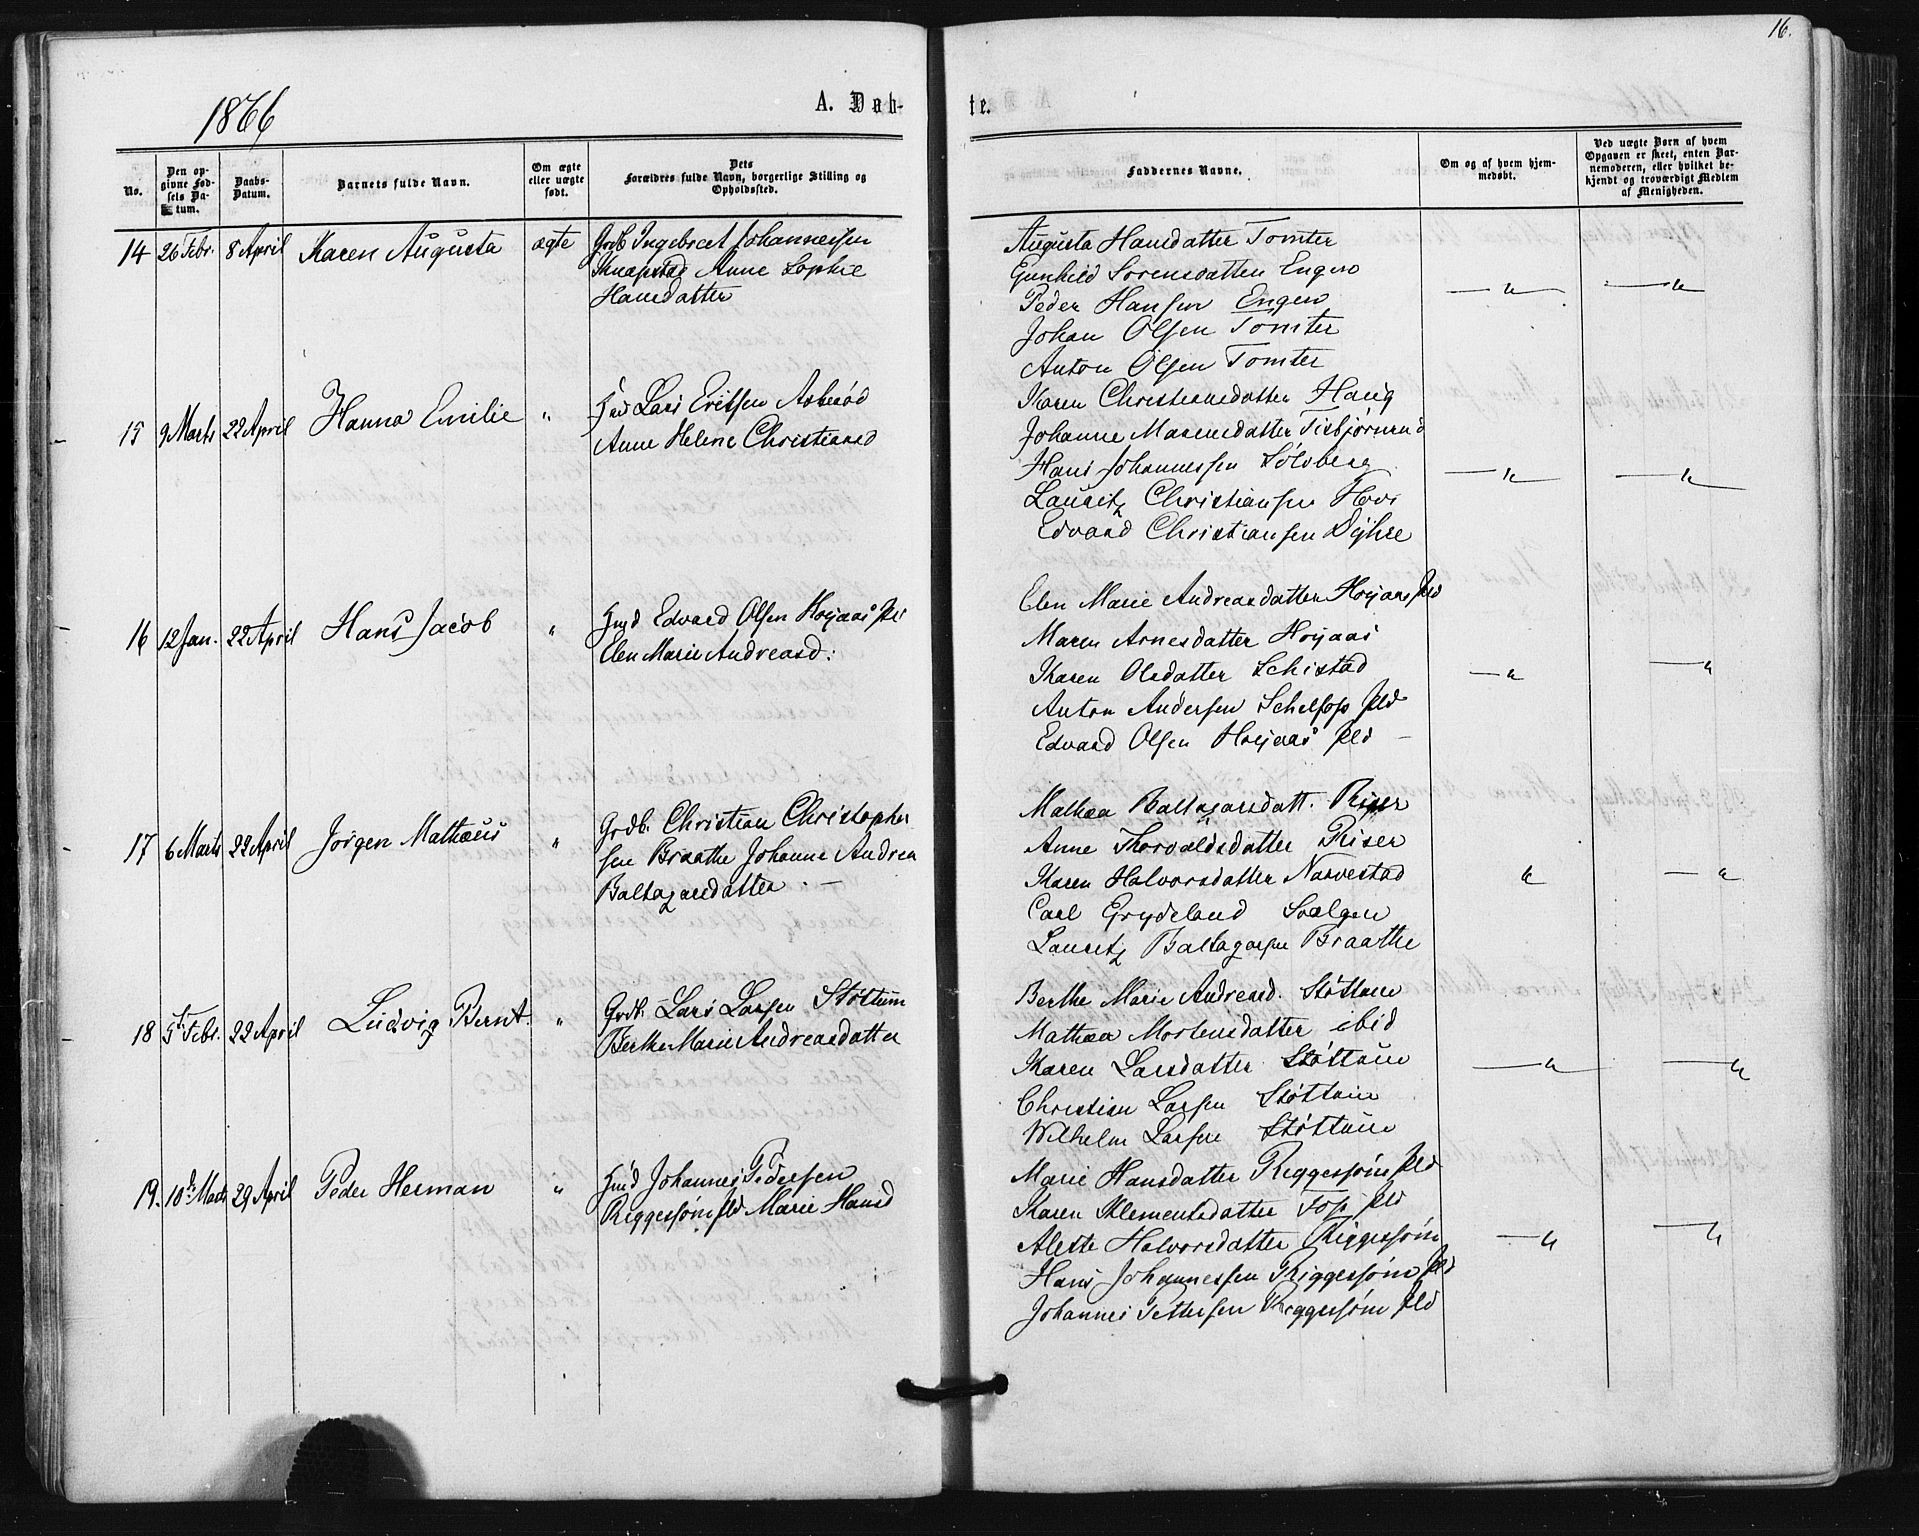 16.
1866
A. Døb-
te.
No.
Den op-
givne Fød-
sels Da-
tum.
Daabs-
Datum.
Barnets fulde Navn.
Om ægte
eller uægte
født.
Dets
Forældres fulde Navn, borgerlige Stilling og
Opholdssted.
Faddernes Navne.
Om og af hvem hjem-
medøbt.
Ved uægte Børn af hvem
Opgaven er skeet, enten Bar-
nemoderen, eller hvilket be-
kjendt og troværdigt Medlem
af Menigheden.
14 26 Febr. 8 April Karen Augusta ægte
Grdb Ingebret Johannessen
Knapstad Anne Sophie
Hansdatter
Augusta Hansdatter Tomter
Gunhild Sorensdatter Engen
Peder Hansen Engen
Johan Olsen Tomter
Anton Olsen Tomter
15 9 Marts 22 April Hanna Emilie "
Lars Eriksen Asberød
Anne Helene Christiansd
Karen Christiansdatter Haug
Johanne Mariusdatter
Hans Johannessen Solsberg
Lauritz Christiansen Hovi
Edvard Christiansen
16 12 Jan. 22 April Hans Jacob "
Hmd Edvard Olsen Hoijaas
Elen Marie Andreasd:
Elen Marie Andreasdatter Hoijaas
Maren Arnesdatter Hoijaas
Karen Olsdatter Schistad
Anton Andersen
Edvard Olsen Hoijaas
17 6 Marts 22 April Jørgen Mathæus "
Grdb. Christian Christopher
sen Braathe Johanne Andrea
Baltazarsdatter
Mathæa Baltazarsdatt. Riser
Anne Thorvaldsdatter Riser
Karen Halvorsdatter Narvestad
Carl Grydeland
Lauritz Baltazarsen Braathe
18 5t Febr. 22 April Ludvig Bernt. "
Grdb. Lars Larsen Støttum
Berthe Marie Andreasdatter
Berthe Marie Andreasd. Støttum
Mathæa Mortensdatter ibid
Karen Larsdatter Støttum
Christian Larsen Støttum
Wilhelm Larsen Støttum
19. 10de Marts 29 April Peder Herman "
Hmd Johannes Pedersen
Riggesøm Marie Hansd
Marie Hansdatter Riggesøm
Karen Klementsdatter Foss
Alette Halvorsdatter Riggesøm
Hans Johannessen Riggesøm
Johannes Pettersen Riggesøm